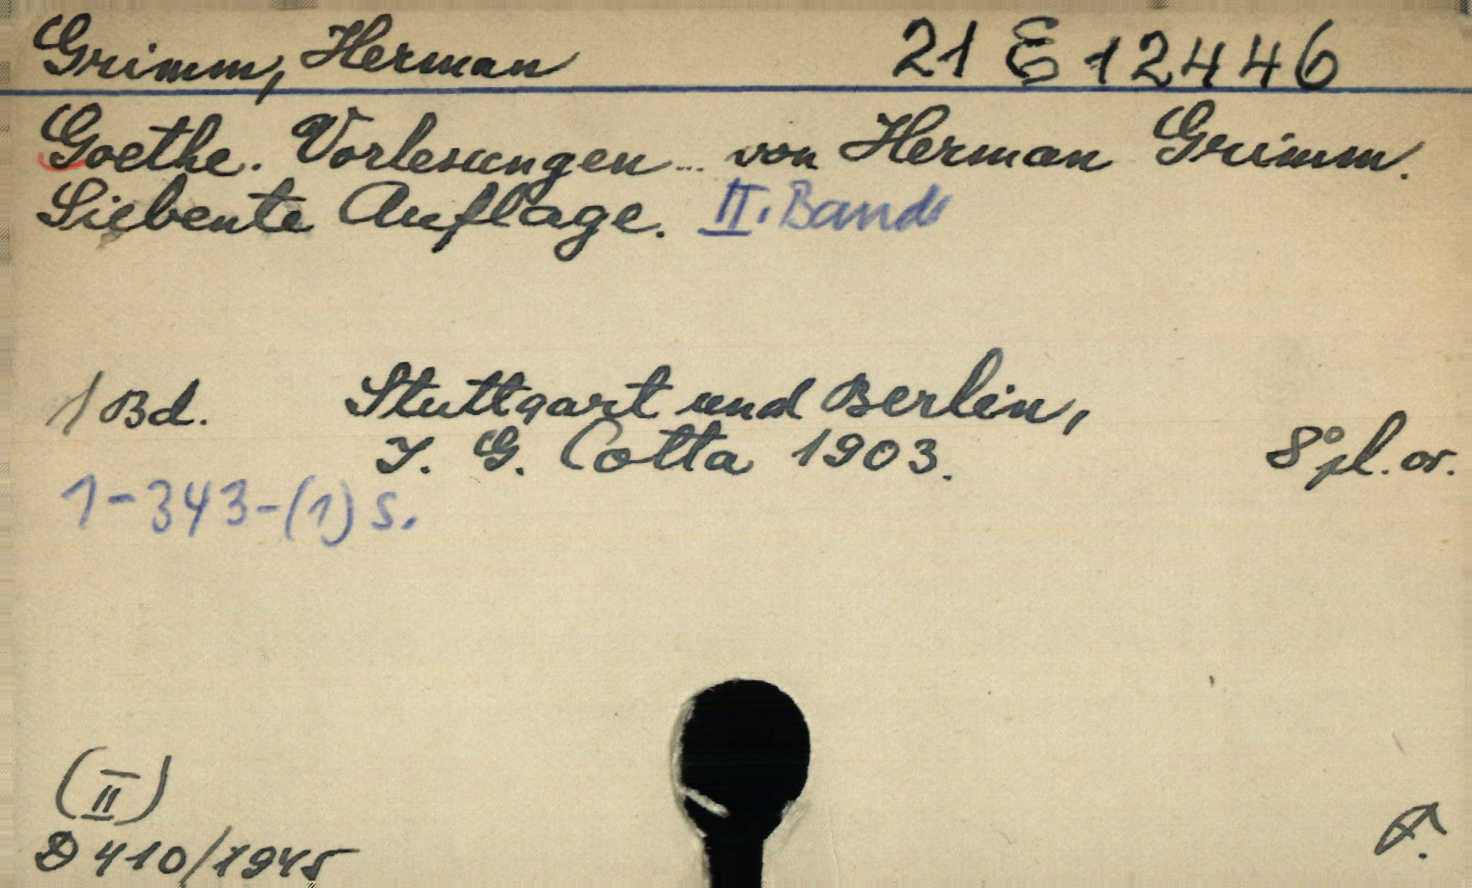 Grimm, Herman 21 E 12446
Goethe. Vorlesungen ... von Herman Grimm.
Siebente Auflage. II. Band
1 Bd. Stuttgart und Berlin,
J. G. Cotta 1903. 8° pl. or.
1-343-(1) S.
(II)
D 410/1945